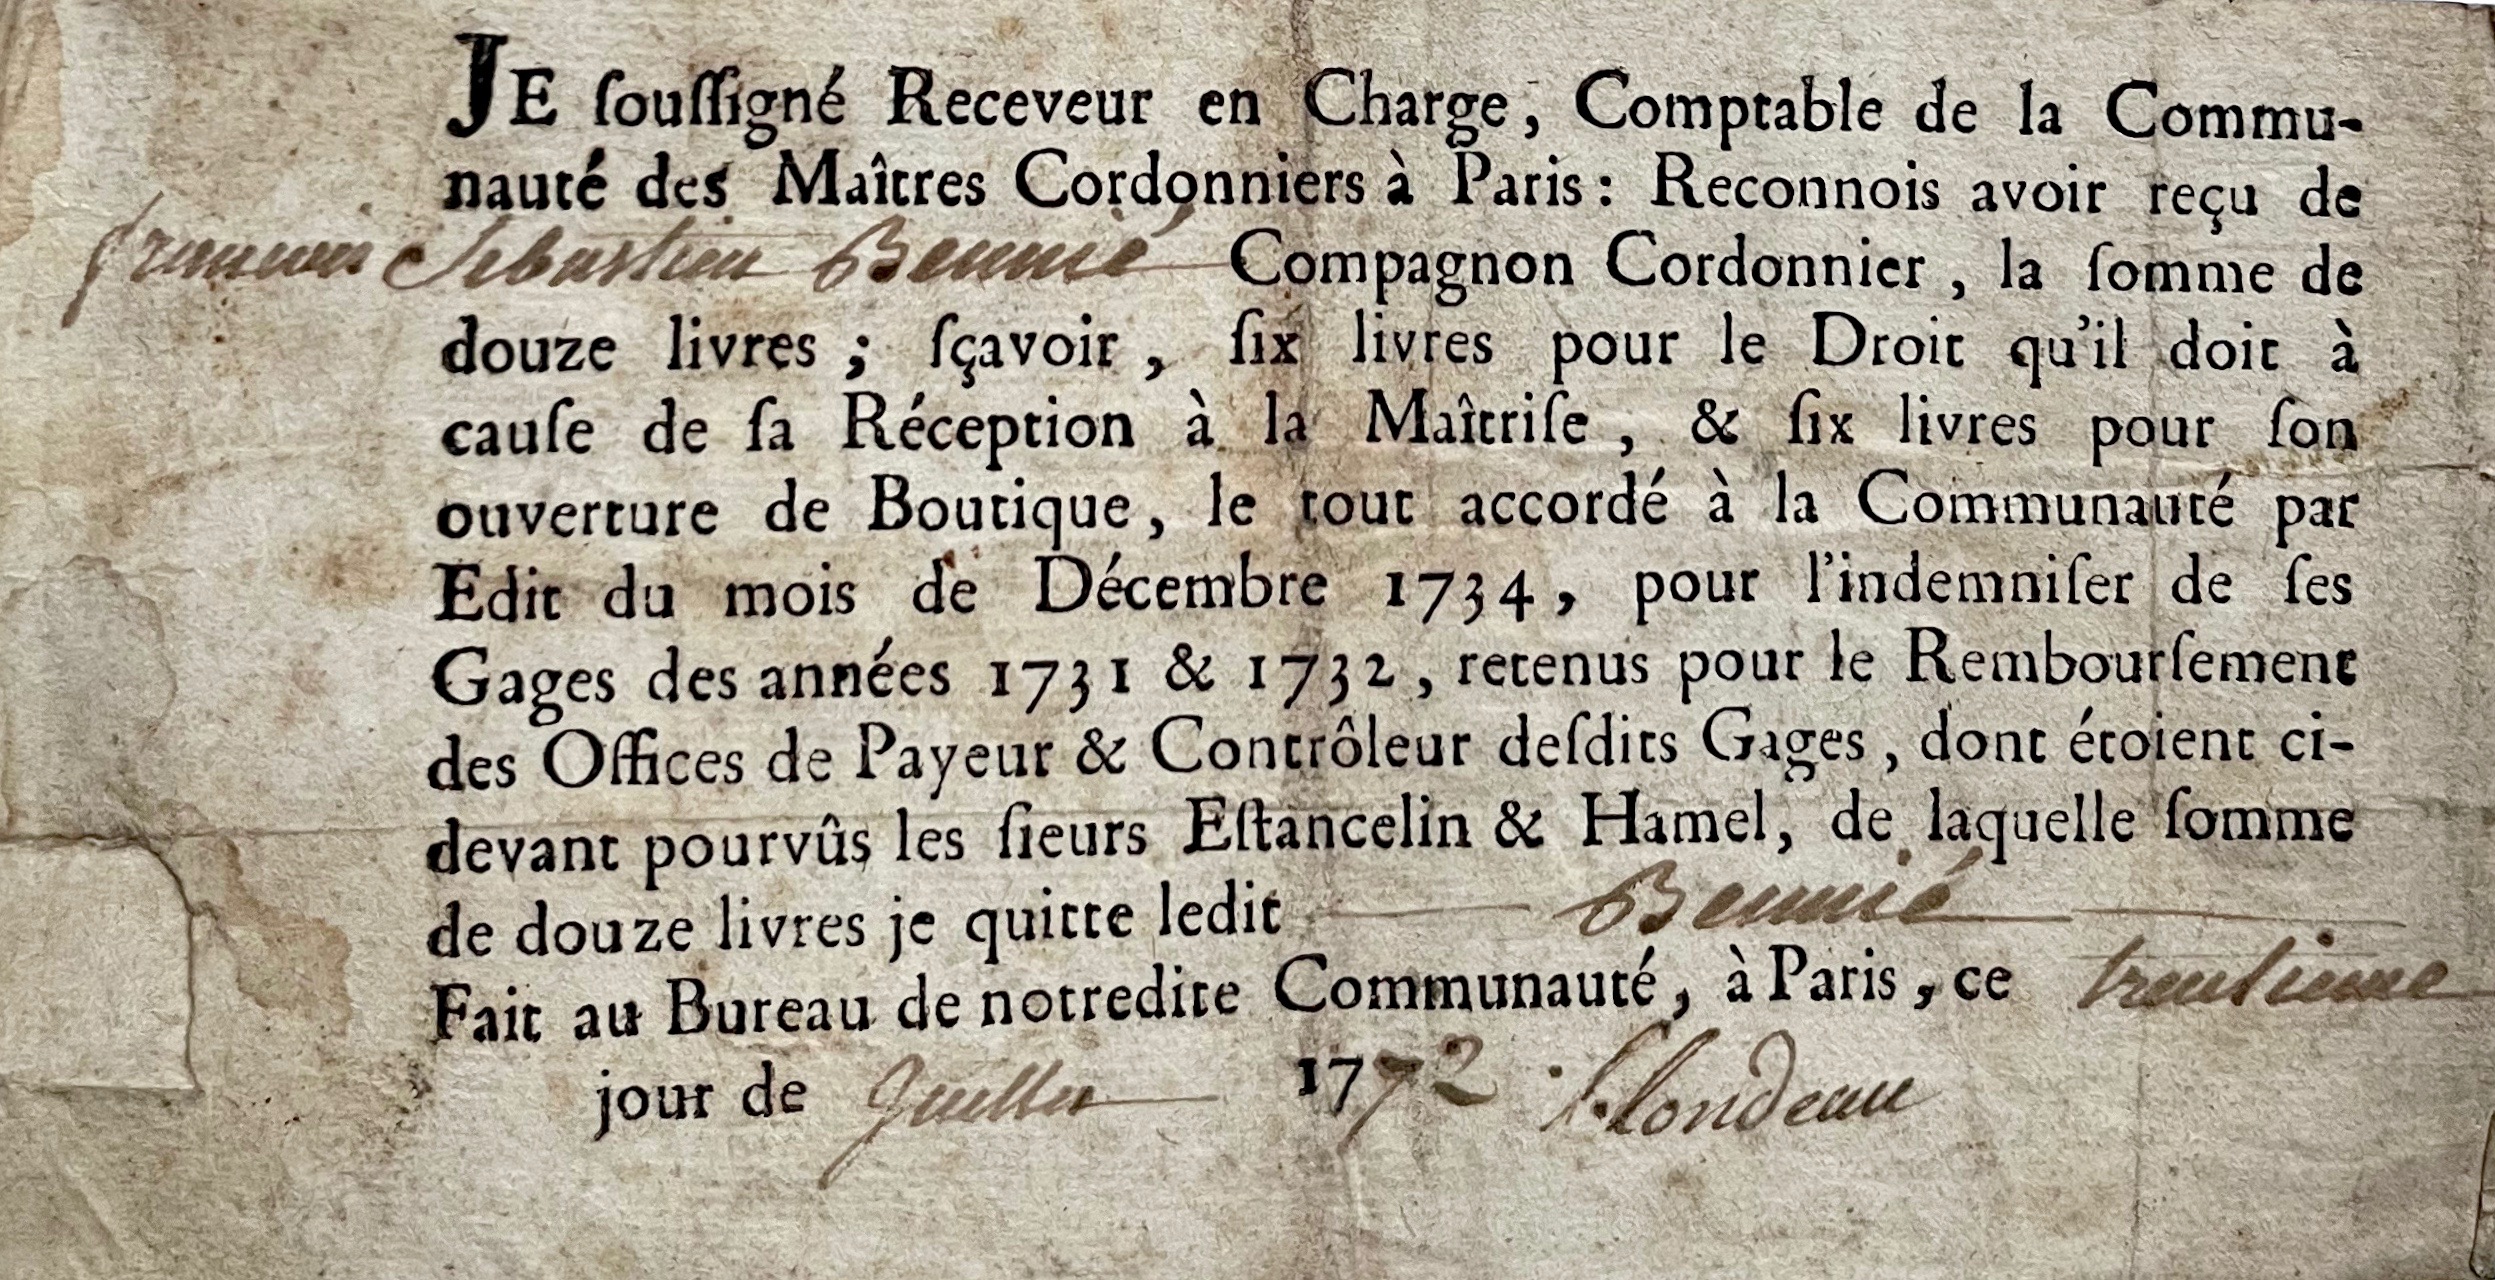 JE ſouſſigné Receveur en Charge, Comptable de la Commu-
nauté des Maîtres Cordonniers à Paris : Reconnois avoir reçu de
francois Sebastien Bennié Compagnon Cordonnier, la ſomme de
douze livres ; ſçavoir, ſix livres pour le Droit qu'il doit à
cauſe de ſa Réception à la Maîtriſe, & ſix livres pour ſon
ouverture de Boutique, le tout accordé à la Communauté par
Edit du mois de Décembre 1734, pour l'indemniſer de ſes
Gages des années 1731 & 1732, retenus pour le Rembourſement
des Offices de Payeur & Contrôleur deſdits Gages, dont étoient ci-
devant pourvûs les ſieurs Eſtancelin & Hamel, de laquelle ſomme
de douze livres je quitte ledit Bennié
Fait au Bureau de notredite Communauté, à Paris, ce trentieme
jour de Juillet 1772 Blondeau